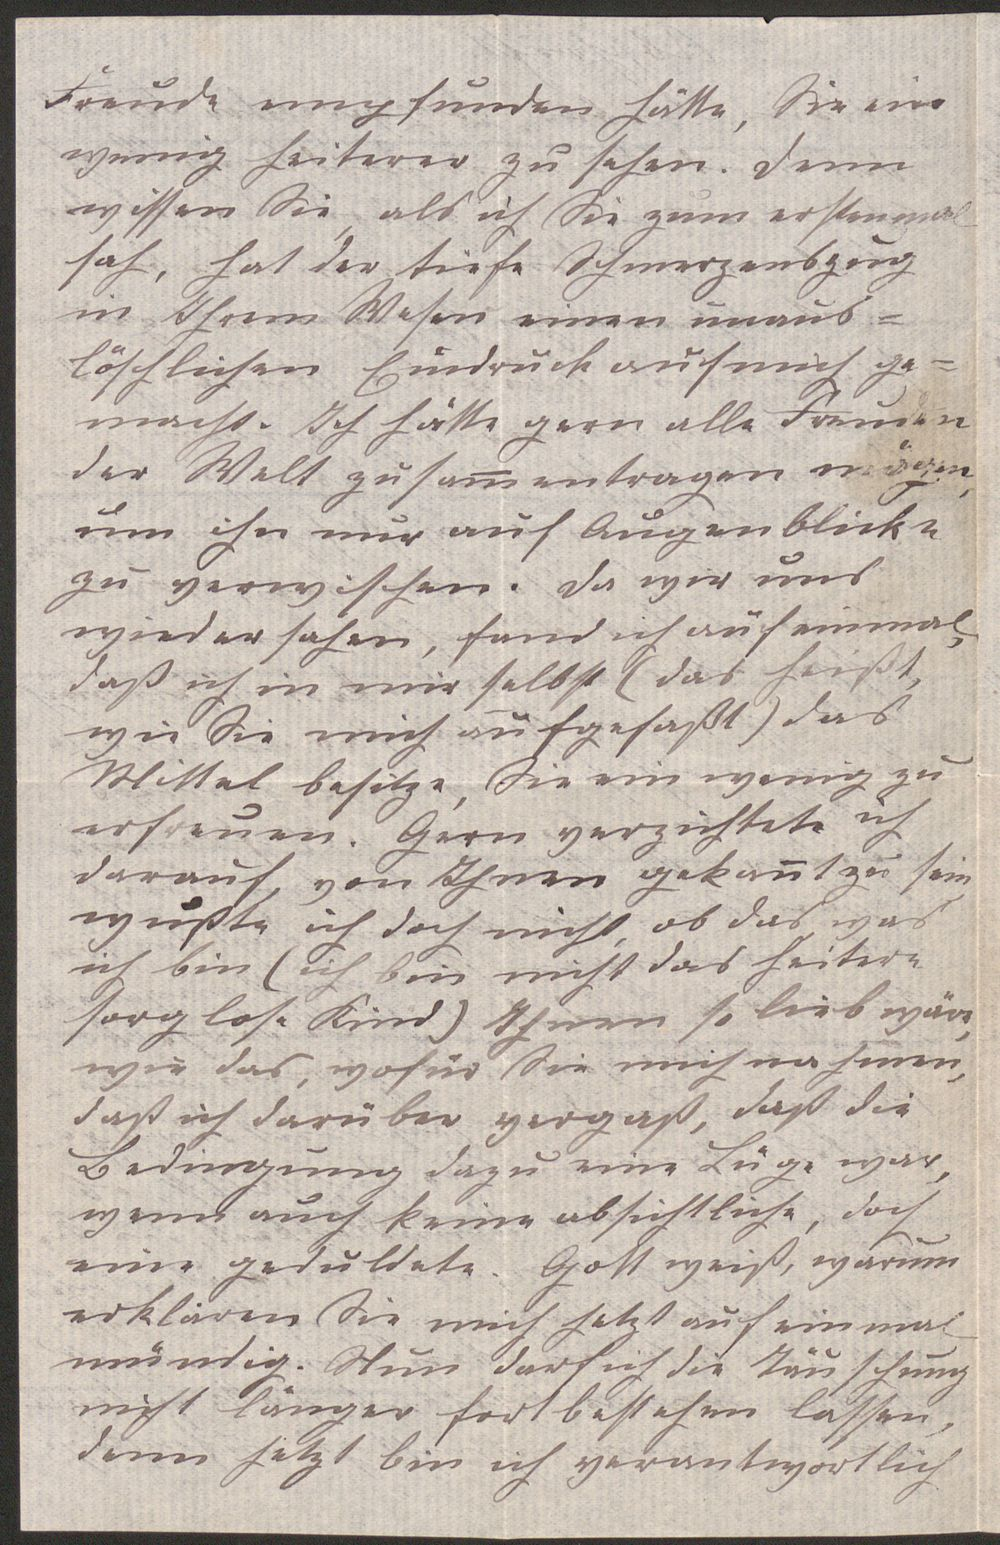 Freude empfunden hätte, Sie ein
wenig heiterer zu sehen. Denn
wissen Sie, als ich Sie zum erstenmal
sah, hat der tiefe Schmerzenszug
in Ihrem Wesen einen unaus=
löschlichen Eindruck auf mich ge=
macht. Ich hätte gern alle Freuden
der Welt zusam̅entragen mögen,
um ihn nur auf Augenblicke
zu verwischen. Da wir uns
wiedersahen, fand ich auf einmal,
daß ich in mir selbst (das heißt,
wie Sie mich aufgefaßt) das
Mittel besitze, Sie ein wenig zu
erfreuen. Gern verzichtete ich
darauf, von Ihnen gekan̅t zu sein
wußte ich doch nicht, ob das was
ich bin (ich bin nicht das heitere
sorglose Kind) Ihnen so lieb wäre,
wie das, wofür Sie mich nahmen,
daß ich darüber vergaß, daß die
Bedingung dazu eine Lüge war,
wenn auch keine absichtliche, doch
eine geduldete. Gott weiß, warum
erklären Sie mich jetzt auf einmal
mündig. Nun darf ich die Täuschung
nicht länger fortbestehen lassen,
denn jetzt bin ich verantwortlich